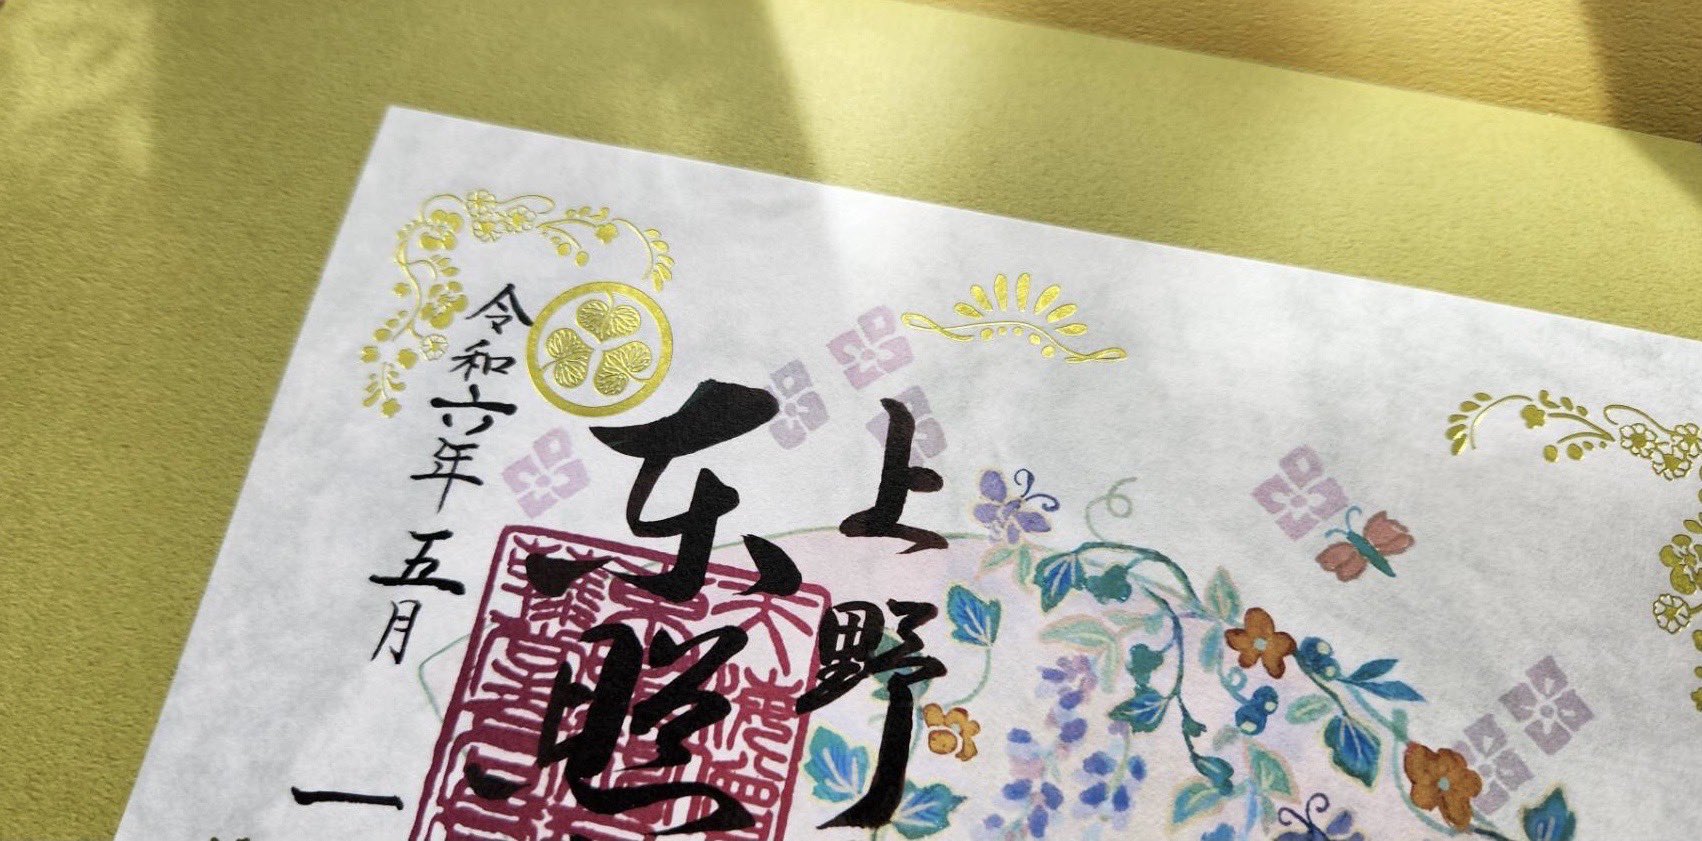 上野
東照
令和六年五月一